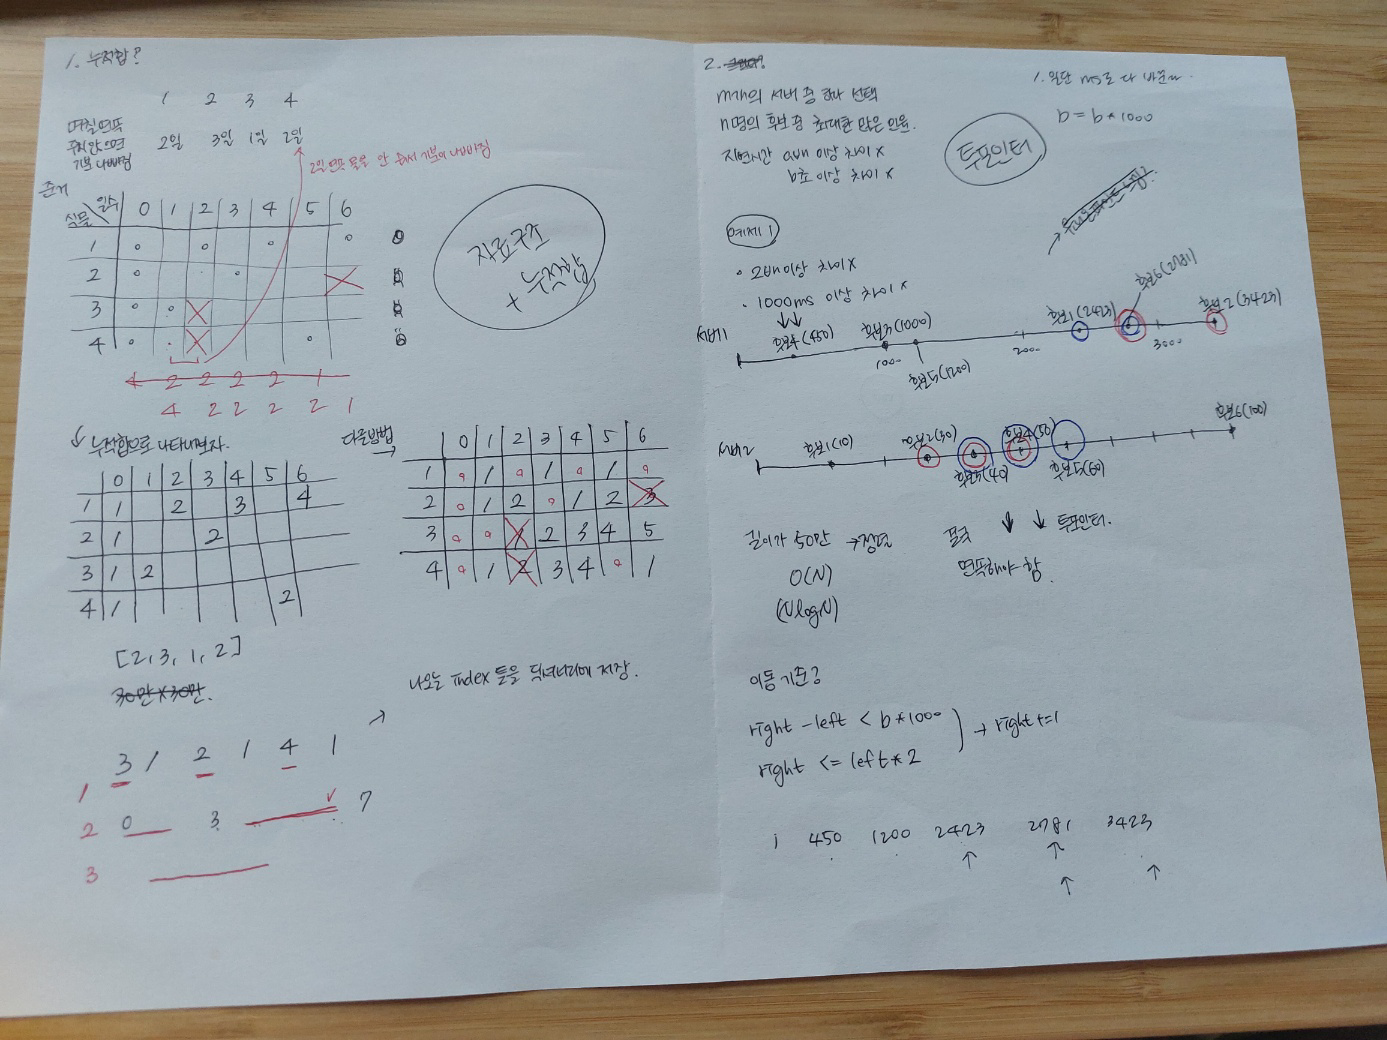 1. 누적합?
1 2 3 4
며칠연속
주지않으면
기분 나빠짐
2일 3일 1일 2일
2일 연속 물을 안 줘서 기분이 나빠짐
식물 일수 0 1 2 3 4 5 6
1
2
3
4
4 2 2 2 2 1
4 2 2 2 2 1
자료구조
+ 누적합
누적합으로 나타내보자.
0 1 2 3 4 5 6
1 1 2 3 4
2 1 2
3 1 2
4 1 2
다른방법
0 1 2 3 4 5 6
1 0 1 0 1 0 1 0
2 0 1 2 0 1 2 3
3 0 0 1 2 3 4 5
4 0 1 2 3 4 0 1
[2, 3, 1, 2]
30만×30만.
나오는 index 들을 딕셔너리에 저장.
3 1 2 1 4 1
1
2 0 3 7
3
2.
m개의 서버 중 하나 선택
n명의 후보 중 최대한 많은 인원.
지연시간 a배 이상 차이 x
b초 이상 차이 x
1. 일단 ms로 다 바꾼다.
b = b*1000
투포인터
예제 1
• 2배이상 차이 x
• 1000ms 이상 차이 x
서버1
후보4(450)
후보3(1000)
1000
후보5(1200)
2000
후보1(2423)
3000
후보2(3423)
서버2
후보1(10)
후보2(30)
후보3(40)
후보4(50)
후보5(60)
후보6(100)
길이가 50만 → 정렬
O(N)
(NlogN)
결국
연속해야 함.
투포인터.
이동 기준?
right - left < b*1000
right <= left*2
→ right += 1
450 1200 2423 2781 3423